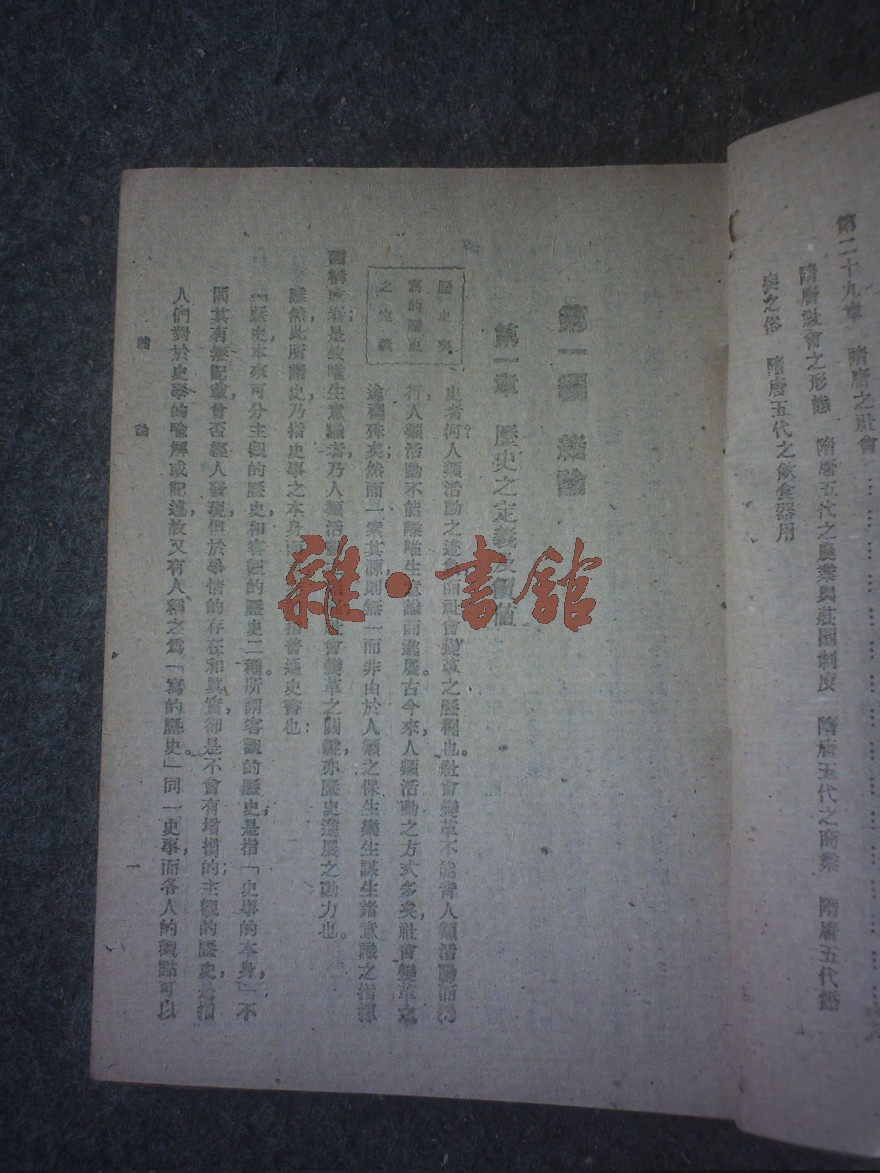 第二十九章　隋唐之社會………………………
隋唐社會之形態　隋唐五代之農業與莊園制度　隋唐五代之商業　隋唐五代
奥之俗　隋唐五代之飲食器用
第一編　總論
第一章　歷史之定義及價值
歷史與
寫的歷史
之定義
史者何?人類活動之迹，而社會變革之歷程也。社會變革不能背人類活動而
行，人類活動不能離唯生意識而進展。古今來，人類活動之方式多矣，社會變革之
途殊矣，然而一索其源，則無一而非由於人類之保生樂生謀生諸意識之指揮
是故唯生意識者，乃人類活動社會變革之關鍵，亦歷史進展之動力也。
雖然，此所謂史，乃指史事之本身而指普通史書也：
「歷史本來可分主觀的歷史和客觀的歷史二種。所謂客觀的歷史是指「史事的本身」，不
問其有無記載，曾否經人發現，但於事情的存在和真實，卻是不會有增損的；主觀的歷史，是指
人們對於史事的喻解或記述，故又有人稱之爲「寫的歷史」。同一史事，而各人的觀點可以
總　論
一
雜·書館